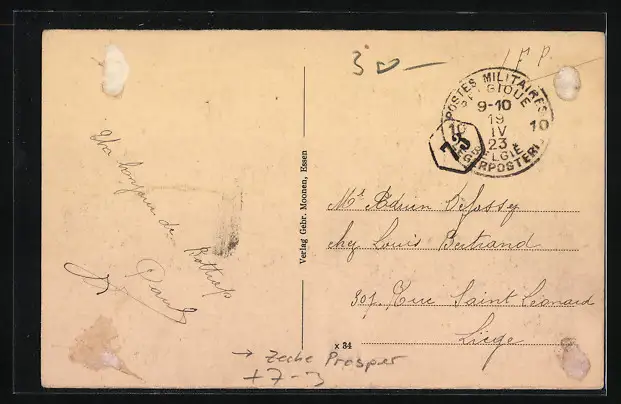 30 —
F P
POSTES MILITAIRES
BELGIQUE
9-10
10 19 10
IV
23
BELGIË
LEGERPOSTERIJ
73
Un bonjour de
Bottrop
Paul
Verlag Gebr. Moonen, Essen
Mr Adrien Defassey
chez Louis Bertrand
307 Rue Saint Léonard
Liége
x 34
→ Zeche Prosper
+ 7-3